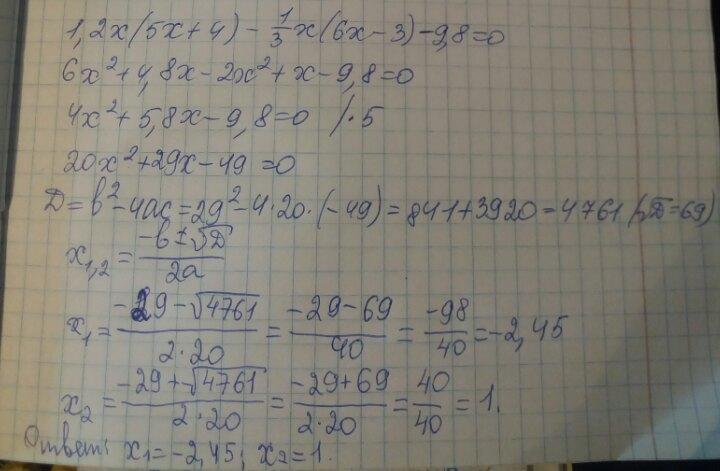 1,2x(5x+4) - 1/3 x(6x-3) - 9,8=0
6x²+4,8x-2x²+x-9,8=0
4x²+5,8x-9,8=0 /·5
20x²+29x-49=0
D=b²-4ac=29²-4·20·(-49)=841+3920=4761 (√D=69)
x₁,₂ = (-b±√D)/2a
x₁ = (-29-√4761)/(2·20) = (-29-69)/40 = -98/40 = -2,45
x₂ = (-29+√4761)/(2·20) = (-29+69)/(2·20) = 40/40 = 1.
Ответ: x₁=-2,45; x₂=1.